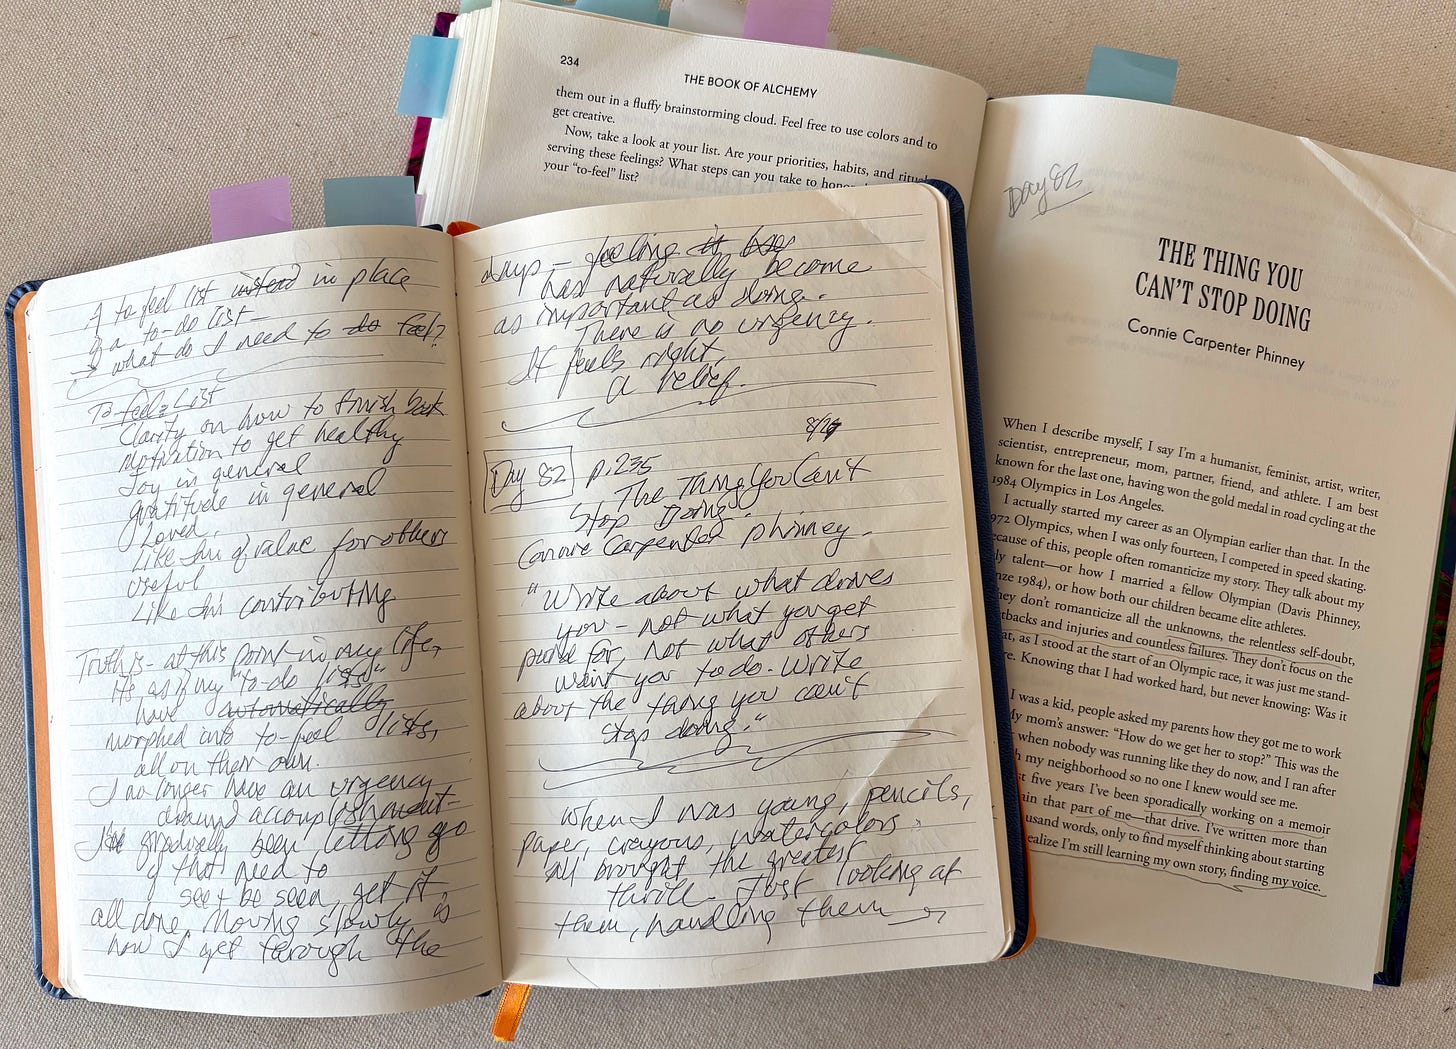 A to feel list instead in place
of a to-do list -
what do I need to do feel?
To-feel List
Clarity on how to finish book
motivation to get healthy
Joy in general
gratitude in general
Loved.
Like I'm of value for others
Useful
Like I'm contributing
Truth is - at this point in my life,
it's as if my "to-do lists"
have automatically
morphed into to-feel lists,
all on their own.
I no longer have an urgency
around accomplishment -
I've gradually been letting go
of that need to
see & be seen, get it
all done. Moving slowly is
how I get through the
days - feeling it has
has naturally become
as important as doing.
There is no urgency.
It feels right,
a relief.
Day 82 p. 235
The Thing You Can't
Stop Doing.
Connie Carpenter Phinney.
"Write about what drives
you - not what you get
paid for, not what others
want you to do. Write
about the thing you can't
stop doing."
When I was young, pencils,
paper, crayons, watercolors
all brought the greatest
thrill. Just looking at
them, handling them
234
THE BOOK OF ALCHEMY
them out in a fluffy brainstorming cloud. Feel free to use colors and to
get creative.
Now, take a look at your list. Are your priorities, habits, and
serving these feelings? What steps can you take to
your "to-feel" list?
Day 82
THE THING YOU
CAN'T STOP DOING
Connie Carpenter Phinney
When I describe myself, I say I'm a humanist, feminist, artist, writer,
scientist, entrepreneur, mom, partner, friend, and athlete. I am best
known for the last one, having won the gold medal in road cycling at the
1984 Olympics in Los Angeles.
I actually started my career as an Olympian earlier than that. In the
Olympics, when I was only fourteen, I competed in speed skating.
of this, people often romanticize my story. They talk about my
talent—or how I married a fellow Olympian (Davis Phinney,
1984), or how both our children became elite athletes.
they don't romanticize all the unknowns, the relentless self-doubt,
and injuries and countless failures. They don't focus on the
as I stood at the start of an Olympic race, it was just me stand-
Knowing that I had worked hard, but never knowing: Was it
I was a kid, people asked my parents how they got me to work
My mom's answer: "How do we get her to stop?" This was the
when nobody was running like they do now, and I ran after
my neighborhood so no one I knew would see me.
five years I've been sporadically working on a memoir
that part of me—that drive. I've written more than
words, only to find myself thinking about starting
realize I'm still learning my own story, finding my voice.